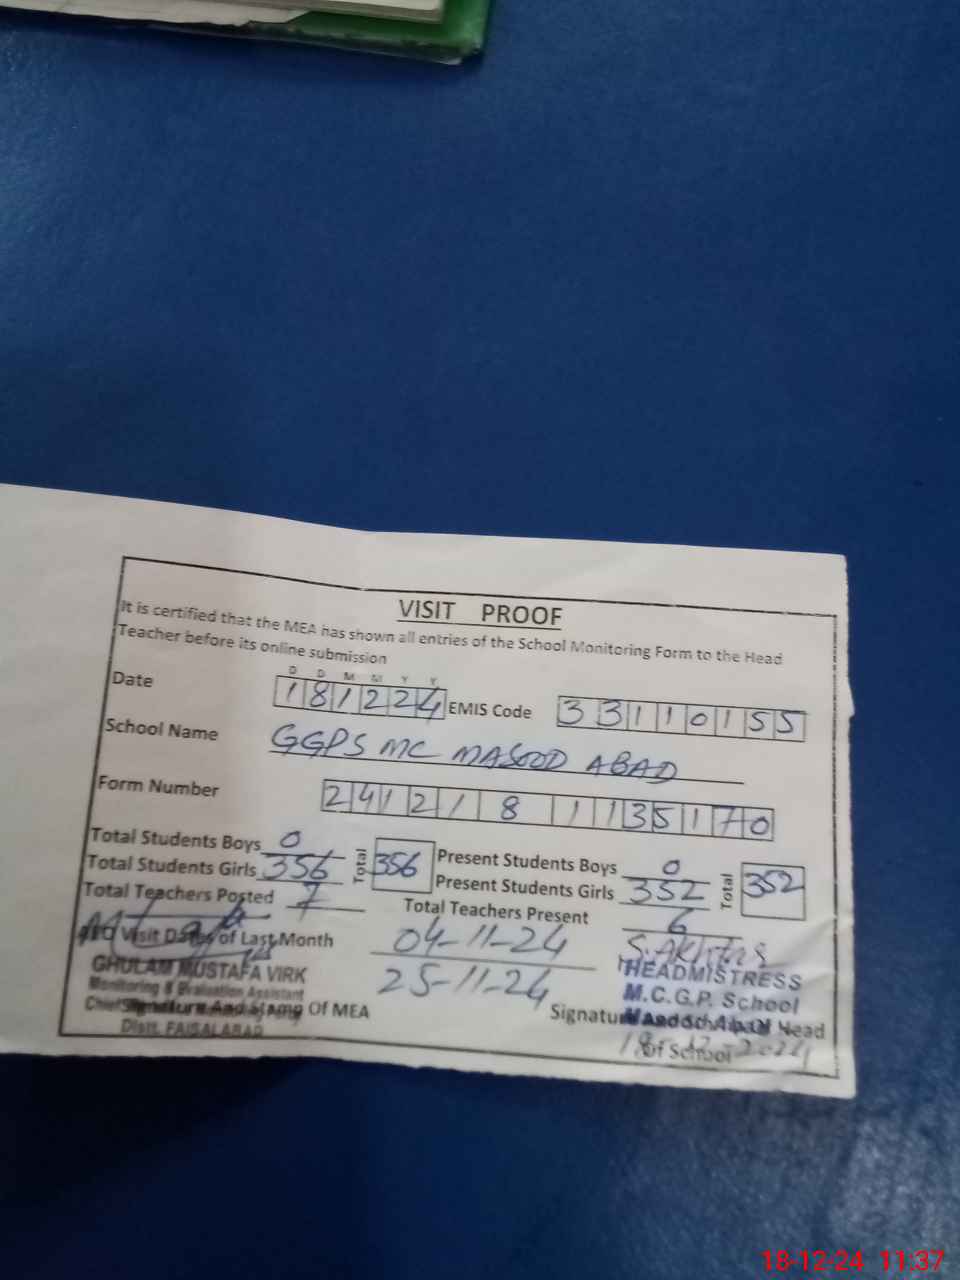 VISIT PROOF
It is certified that the MEA has shown all entries of the School Monitoring Form to the Head
Teacher before its online submission
D D M M Y Y
Date 181224 EMIS Code 33110155
School Name GGPS MC MASOOD ABAD
Form Number 2412181135170
Total Students Boys 0 Total 356 Present Students Boys 0 Total 352
Total Students Girls 356 Present Students Girls 352
Total Teachers Posted 7 Total Teachers Present 6
Visit Dates of Last Month 04-11-24
25-11-24
S. Akhtar
GHULAM MUSTAFA VIRK
Monitoring & Evaluation Assistant
Signature And Stamp Of MEA
Distt. FAISALABAD
HEADMISTRESS
M.C.G.P. School
Signature And Stamp Of Head
of School
18-12-2024
18-12-24 11:37